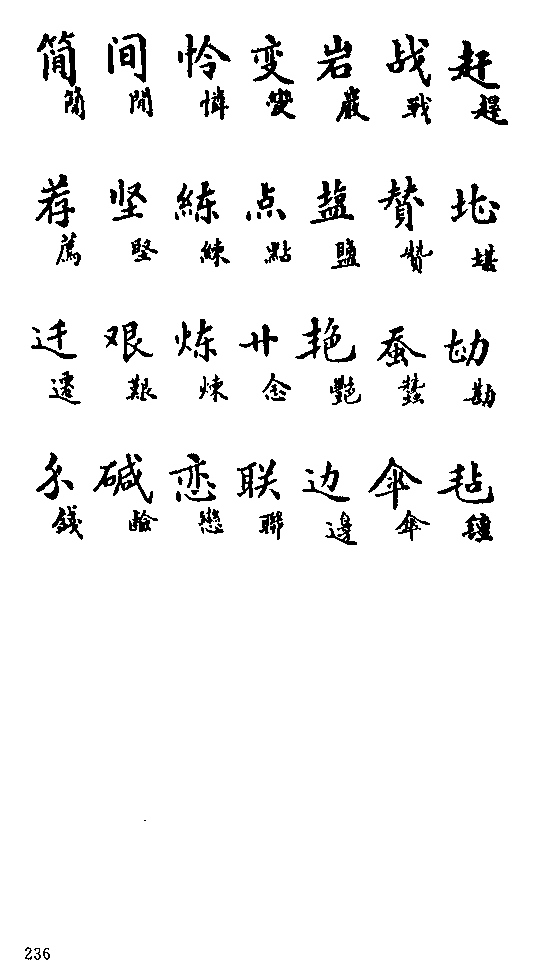 赶 趕 堪 勘 毡 氈
战 戰 賛 贊 蚕 蠶 伞 傘
岩 巖 盐 鹽 艳 艷 边 邊
变 變 点 點 廿 念 联 聯
怜 憐 练 練 炼 煉 恋 戀
间 間 坚 堅 艰 艱 碱 鹼
简 簡 荐 薦 迁 遷 錢
236